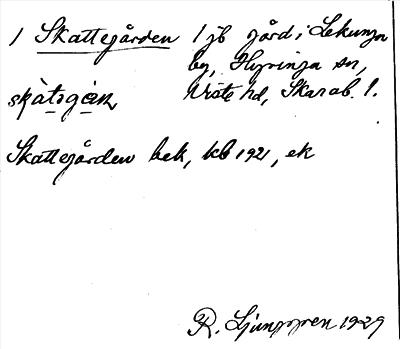 1 Skattegården 1 jb gård i Lekunga
by, Hyringa sn,
skàtsgàn, Viste hd, Skarab. l.
Skattegården bek, kb 1921, ek
R. Ljunggren 1929